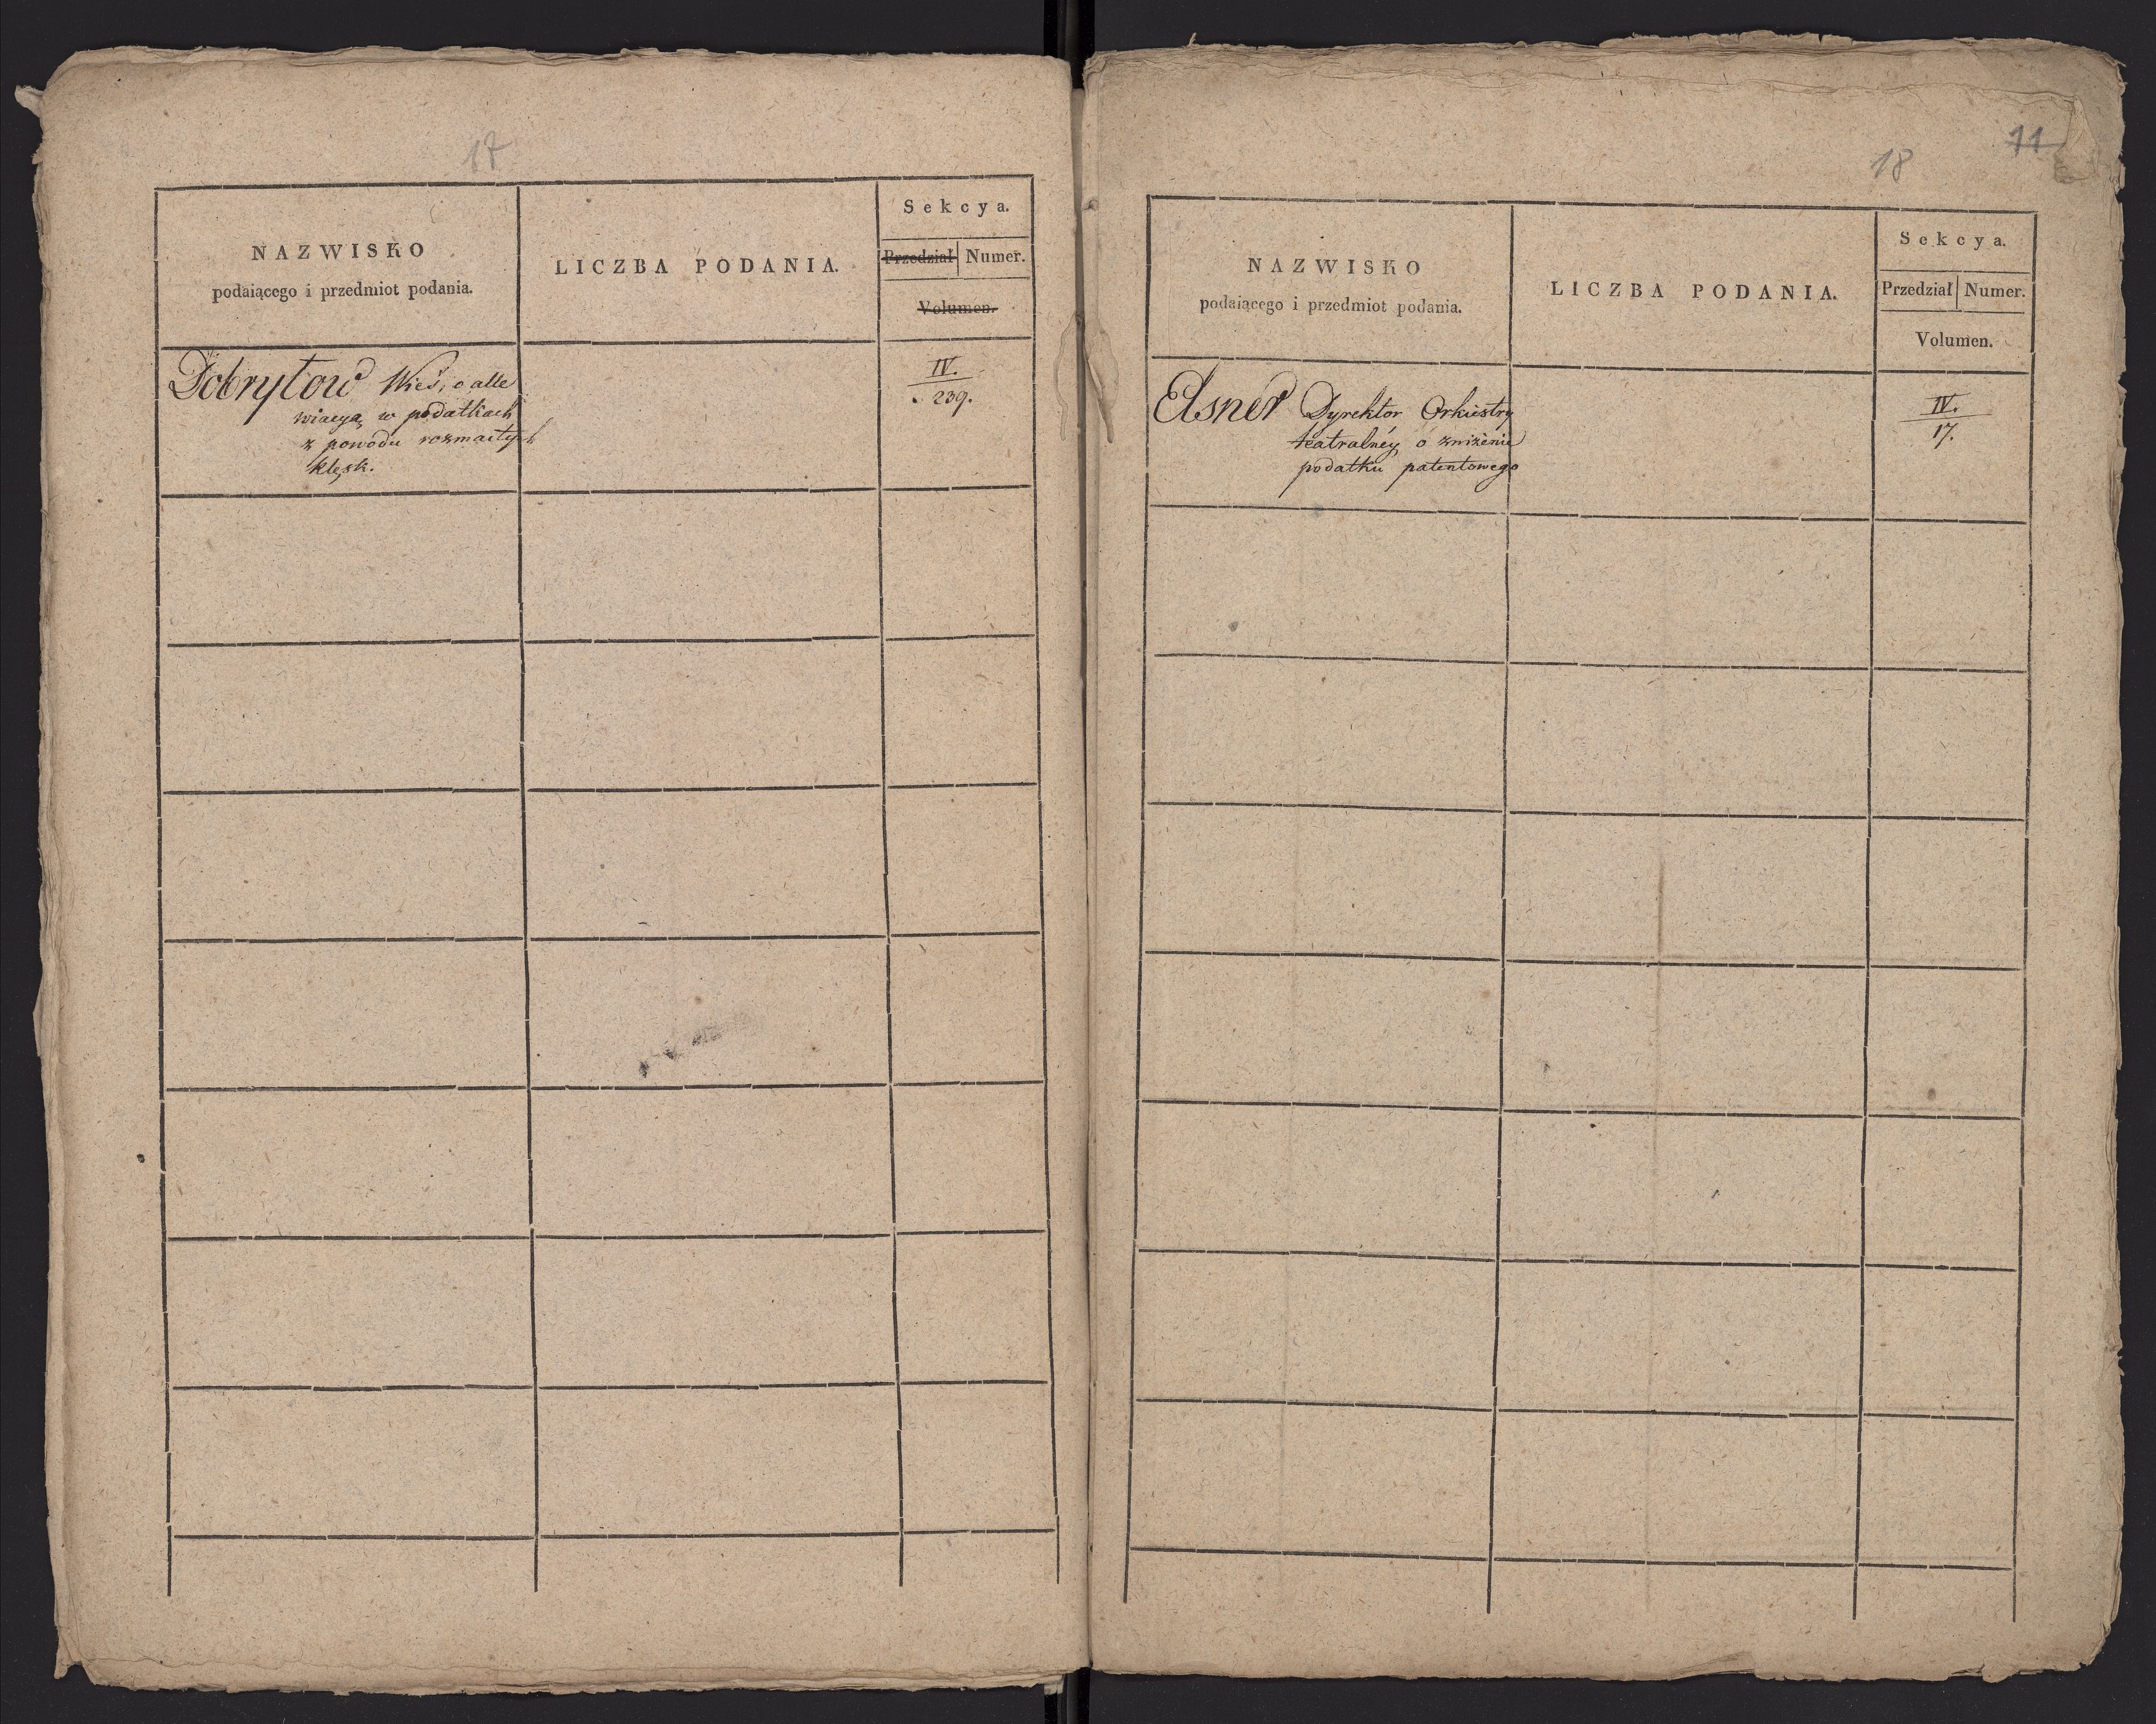 17
NAZWISKO
podaiącego i przedmiot podania.
LICZBA PODANIA.
Sekcya.
Przedział Numer.
Volumen.
Dobrytow Wieś, o alle
wiacyą w podatkach
z powodu rozmaitych
klęsk.
IV.
239.
11
18
NAZWISKO
podaiącego i przedmiot podania.
LICZBA PODANIA.
Sekcya.
Przedział Numer.
Volumen.
Elsner Dyrektor Orkiestry
teatralnéy, o zniżenie
podatku patentowego
IV.
17.